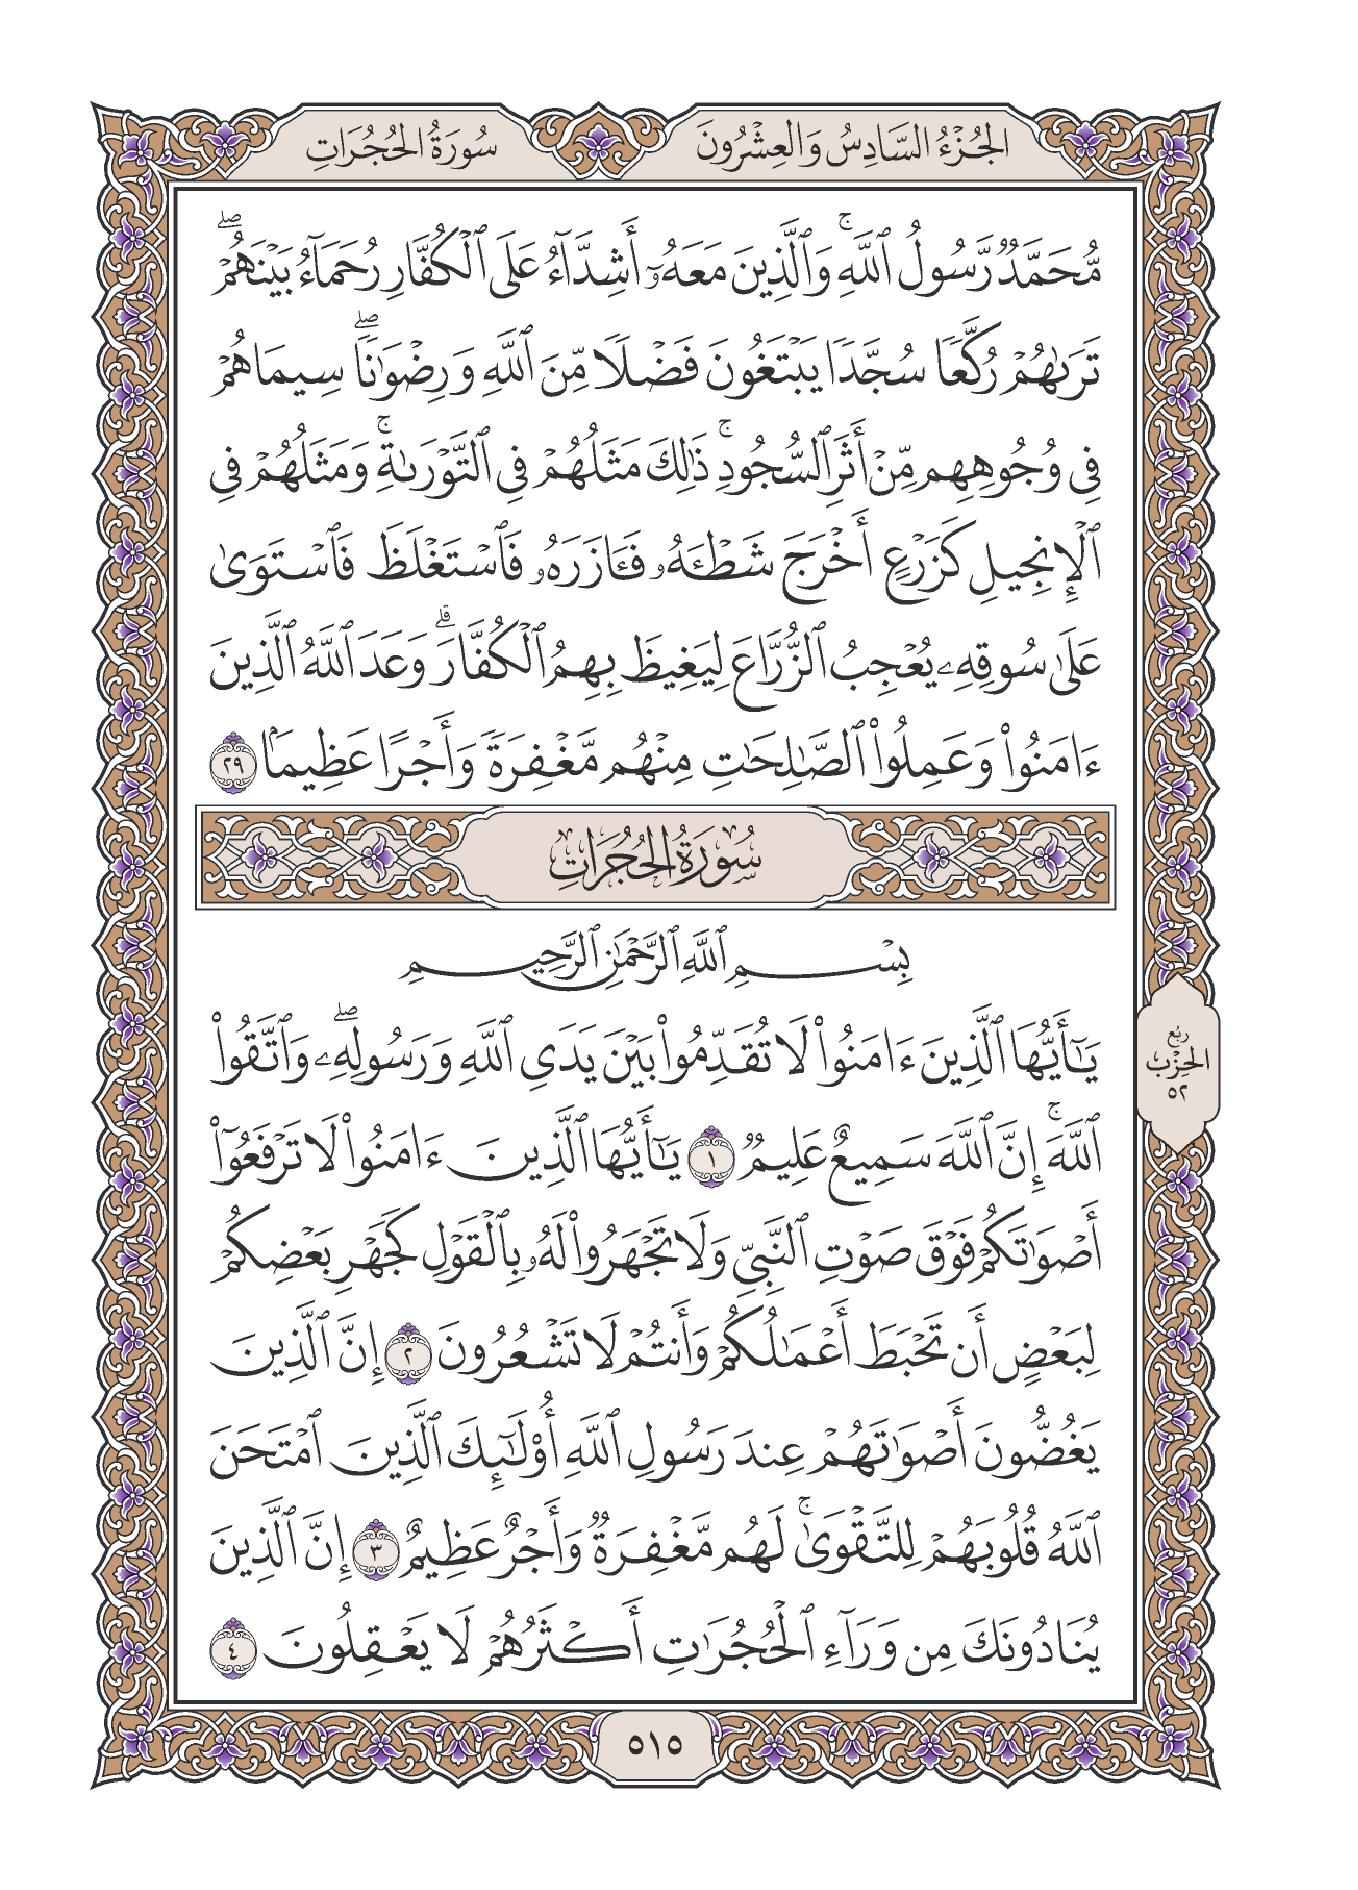 الجُزْءُ السَّادِسُ وَالعِشْرُونَ
سُورَةُ الحُجُرَاتِ
مُّحَمَّدٌ رَّسُولُ ٱللَّهِۚ وَٱلَّذِينَ مَعَهُۥٓ أَشِدَّآءُ عَلَى ٱلْكُفَّارِ رُحَمَآءُ بَيْنَهُمْۖ
تَرَىٰهُمْ رُكَّعًا سُجَّدًا يَبْتَغُونَ فَضْلًا مِّنَ ٱللَّهِ وَرِضْوَٰنًاۖ سِيمَاهُمْ
فِى وُجُوهِهِم مِّنْ أَثَرِ ٱلسُّجُودِۚ ذَٰلِكَ مَثَلُهُمْ فِى ٱلتَّوْرَىٰةِۚ وَمَثَلُهُمْ فِى
ٱلْإِنجِيلِ كَزَرْعٍ أَخْرَجَ شَطْـَٔهُۥ فَـَٔازَرَهُۥ فَٱسْتَغْلَظَ فَٱسْتَوَىٰ
عَلَىٰ سُوقِهِۦ يُعْجِبُ ٱلزُّرَّاعَ لِيَغِيظَ بِهِمُ ٱلْكُفَّارَۗ وَعَدَ ٱللَّهُ ٱلَّذِينَ
ءَامَنُوا۟ وَعَمِلُوا۟ ٱلصَّـٰلِحَـٰتِ مِنْهُم مَّغْفِرَةً وَأَجْرًا عَظِيمًۢا ٢٩
سُورَةُ الحُجُرَاتِ
بِسْمِ ٱللَّهِ ٱلرَّحْمَـٰنِ ٱلرَّحِيمِ
يَـٰٓأَيُّهَا ٱلَّذِينَ ءَامَنُوا۟ لَا تُقَدِّمُوا۟ بَيْنَ يَدَىِ ٱللَّهِ وَرَسُولِهِۦۖ وَٱتَّقُوا۟
ٱللَّهَۚ إِنَّ ٱللَّهَ سَمِيعٌ عَلِيمٌ ١ يَـٰٓأَيُّهَا ٱلَّذِينَ ءَامَنُوا۟ لَا تَرْفَعُوٓا۟
أَصْوَٰتَكُمْ فَوْقَ صَوْتِ ٱلنَّبِىِّ وَلَا تَجْهَرُوا۟ لَهُۥ بِٱلْقَوْلِ كَجَهْرِ بَعْضِكُمْ
لِبَعْضٍ أَن تَحْبَطَ أَعْمَـٰلُكُمْ وَأَنتُمْ لَا تَشْعُرُونَ ٢ إِنَّ ٱلَّذِينَ
يَغُضُّونَ أَصْوَٰتَهُمْ عِندَ رَسُولِ ٱللَّهِ أُو۟لَـٰٓئِكَ ٱلَّذِينَ ٱمْتَحَنَ
ٱللَّهُ قُلُوبَهُمْ لِلتَّقْوَىٰۚ لَهُم مَّغْفِرَةٌ وَأَجْرٌ عَظِيمٌ ٣ إِنَّ ٱلَّذِينَ
يُنَادُونَكَ مِن وَرَآءِ ٱلْحُجُرَٰتِ أَكْثَرُهُمْ لَا يَعْقِلُونَ ٤
رُبُع
الحِزْب
٥٢
٥١٥